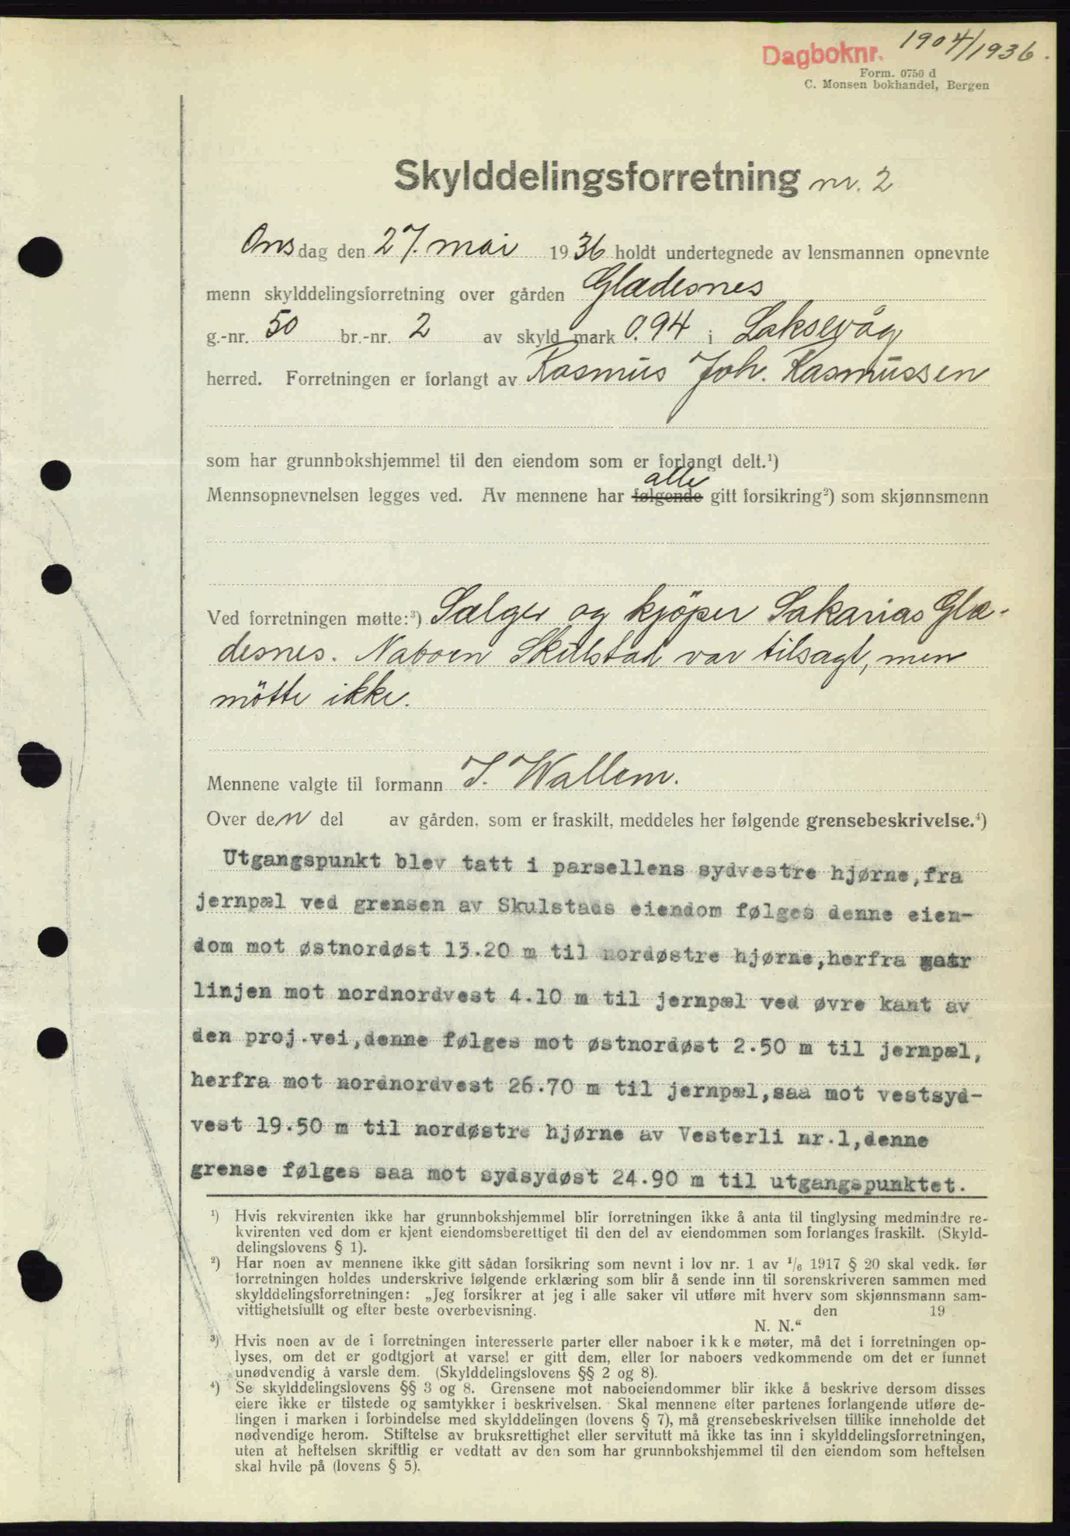 Dagboknr. 1904/1936.
Form. 0750 d
C. Monsen bokhandel, Bergen
Skylddelingsforretning nr. 2
Onsdag den 27. mai 1936 holdt undertegnede av lensmannen opnevnte
menn skylddelingsforretning over gården Glædesnes
g.-nr. 50 br.-nr. 2 av skyld mark 0.94 i Laksevåg
herred. Forretningen er forlangt av Rasmus Joh. Rasmussen
som har grunnbokshjemmel til den eiendom som er forlangt delt.¹)
alle
Mennsopnevnelsen legges ved. Av mennene har følgende gitt forsikring²) som skjønnsmenn
Ved forretningen møtte:³) Sælger og kjöper Sakarias Glæ-
desnes. Naboen Skulstad var tilsagt, men
mötte ikke.
Mennene valgte til formann I. Wallem.
Over den del av gården, som er fraskilt, meddeles her følgende grensebeskrivelse.⁴)
Utgangspunkt blev tatt i parsellens sydvestre hjørne, fra
jernpæl ved grensen av Skulstads eiendom følges denne eien-
dom mot østnordøst 13.20 m til nordøstre hjørne, herfra gaar
linjen mot nordnordvest 4.10 m til jernpæl ved øvre kant av
den proj.vei, denne følges mot østnordøst 2.50 m til jernpæl,
herfra mot nordnordvest 26.70 m til jernpæl, saa mot vestsyd-
vest 19.50 m til nordøstre hjørne av Vesterli nr.1, denne
grense følges saa mot sydsydøst 24.90 m til utgangspunktet.
¹) Hvis rekvirenten ikke har grunnbokshjemmel blir forretningen ikke å anta til tinglysing medmindre re-
kvirenten ved dom er kjent eiendomsberettiget til den del av eiendommen som forlanges fraskilt. (Skyld-
delingslovens § 1).
²) Har noen av mennene ikke gitt sådan forsikring som nevnt i lov nr. 1 av 1/6 1917 § 20 skal vedk. før
forretningen holdes underskrive følgende erklæring som blir å sende inn til sorenskriveren sammen med
skylddelingsforretningen: „Jeg forsikrer at jeg i alle saker vil utføre mit hverv som skjønnsmann sam-
vittighetsfullt og efter beste overbevisning. den 19
N. N.“
³) Hvis noen av de i forretningen interesserte parter eller naboer ikke møter, må det i forretningen op-
lyses, om det er godtgjort at varsel er gitt dem, eller for naboers vedkommende om det er funnet
unødvendig å varsle dem. (Skylddelingslovens §§ 2 og 8).
⁴) Se skylddelingslovens §§ 3 og 8. Grensene mot naboeiendommer blir ikke å beskrive dersom disses
eiere ikke er tilstede og samtykker i beskrivelsen. Skal mennene efter partenes forlangende utføre de-
lingen i marken i forbindelse med skylddelingen (lovens § 7), må grensebeskrivelsen tillike inneholde det
nødvendige herom. Stiftelse av bruksrettighet eller servitutt må ikke tas inn i skylddelingsforretningen,
uten at heftelsen skriftlig er vedtatt av den som har grunnbokshjemmel til den eiendom som heftelsen
skal hvile på (lovens § 5).